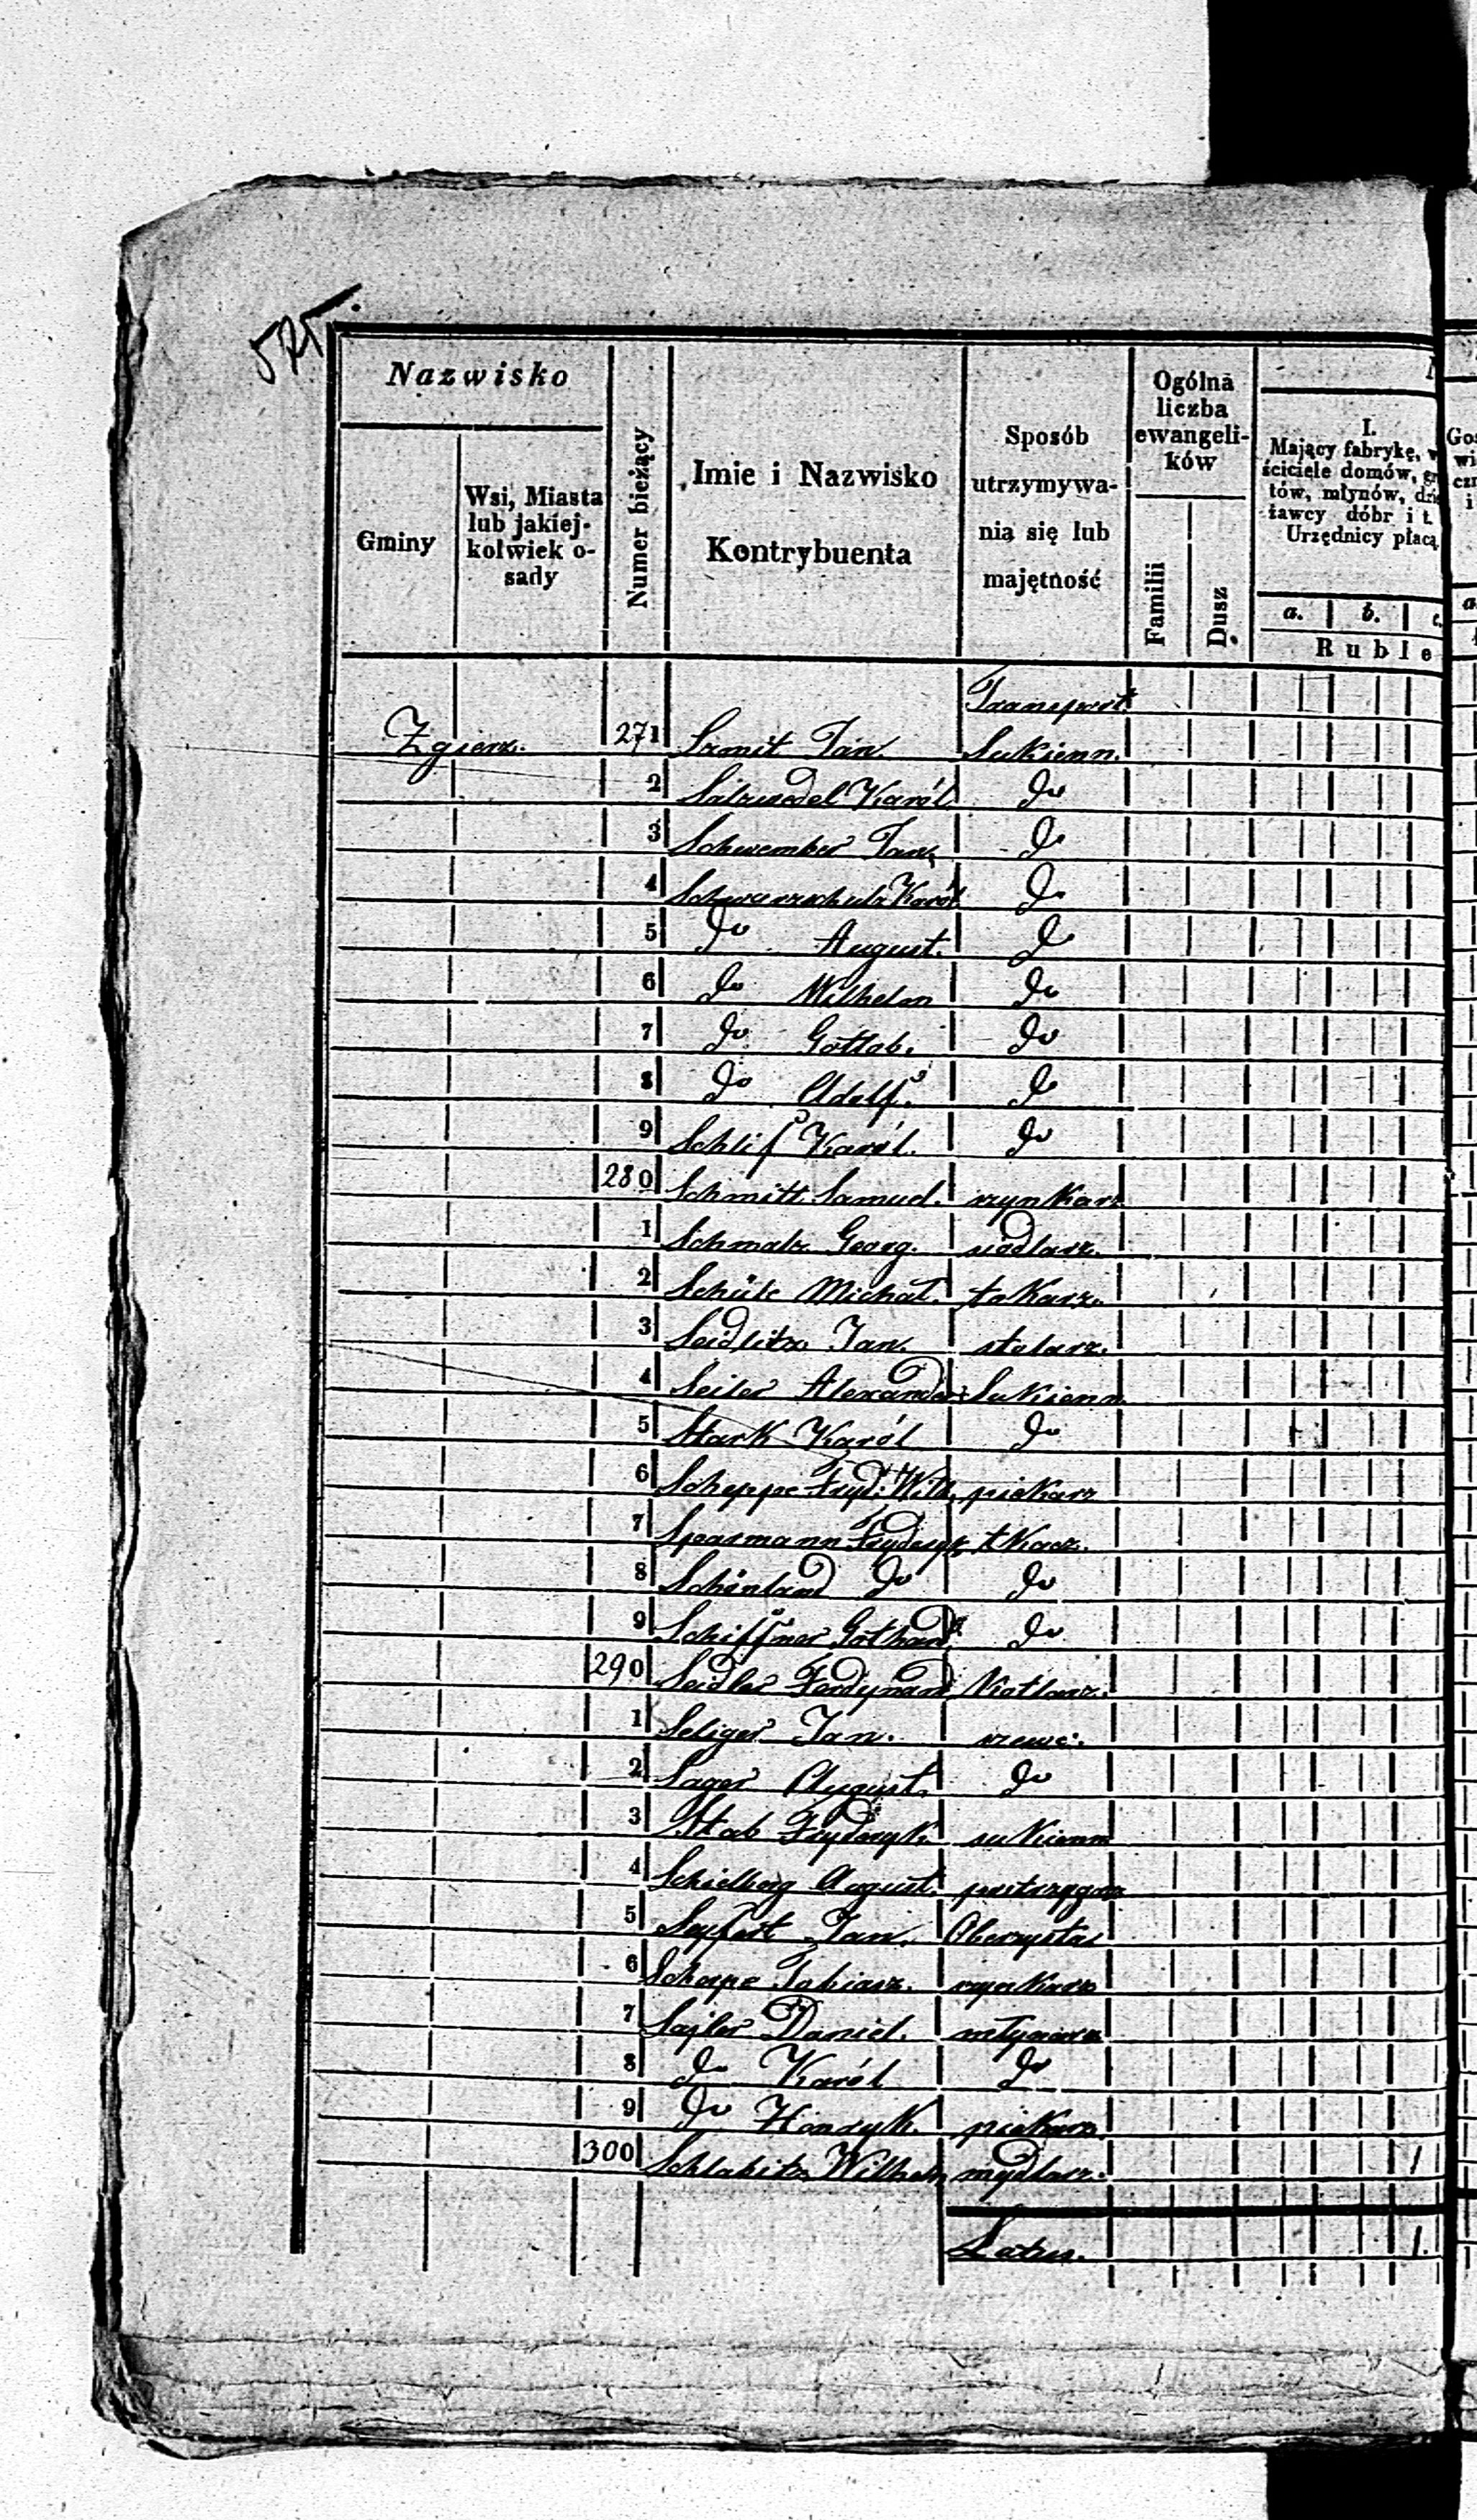 575.
Nazwisko
Gminy
Wsi, Miasta lub jakiej-kolwiek o-sady
Numer bieżący
Imie i Nazwisko Kontrybuenta
Sposób utrzymywa-nia się lub majętność
Ogólna liczba ewangeli-ków
Familii
Dusz
I.
Mający fabrykę, w
ściciele domów, gr
tów, młynów, dzie
żawcy dóbr i t.
Urzędnicy płacą
a. b. c.
Ruble
Transport
Zgierz. 271 Szmit Jan. Sukienn.
2 Salzwedel Karól do
3 Schwember Jan, do
4 Schwarzschulz Karól do
5 do August. do
6 do Wilhelm do
7 do Gottlob. do
8 do Adolf. do
9 Schlif Karól. do
280 Schmitt Samuel. szynkarz
1 Schmalz Georg. siodlarz.
2 Schülc Michał. tokarz.
3 Seidlitz Jan. stolarz.
4 Seiler Alexander Sukienn.
5 Stark Karól do
6 Scheppe Fryd: Wilh. piekarz
7 Spearmann Fryderyk tkacz.
8 Schönland do do
9 Schiffner Gothard do
290 Seidler Ferdynand Kotlarz.
1 Seliger Jan. szewc.
2 Sager August. do
3 Stab Fryderyk. sukienn
4 Schielberg August. postrzygacz
5 Seyfert Jan. Oberzysta
6 Scherpe Tobiasz. szynkarz
7 Sajler Daniel. młynarz
8 do Karól do
9 do Henryk. piekarz.
300 Schlabitz Wilhelm mydlarz. 1
Latus. 1.